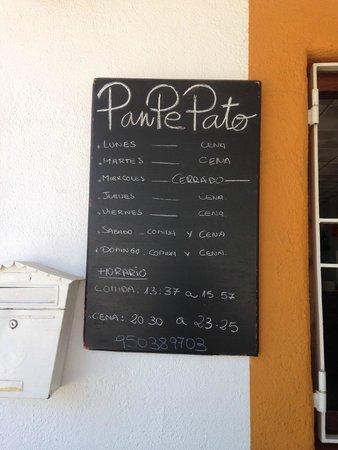 PanPePato
• LUNES —— CENA
• MARTES —— CENA
• MIERCOLES — CERRADO —
• JUEVES —— CENA.
• VIERNES —— CENA.
• SABADO _ COMIDA Y CENA.
• DOMINGO _ COMIDA Y CENA.
HORARIO
COMIDA: 13:37 a 15:57
CENA: 20 30 a 23:25
950389703